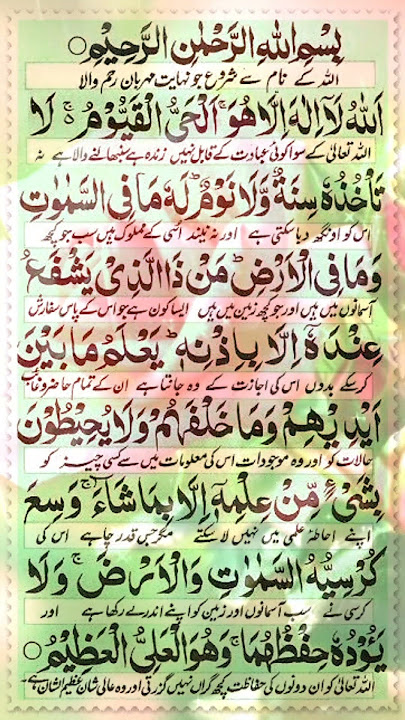 بِسْمِ اللهِ الرَّحْمٰنِ الرَّحِيْمِ ○
اللہ کے نام سے شروع جو نہایت مہربان رحم والا
اَللهُ لَآ اِلٰهَ اِلَّا هُوَ ۚ اَلْحَیُّ الْقَیُّوْمُ ۚ لَا
اللہ تعالیٰ کے سوا کوئی عبادت کے قابل نہیں زندہ ہے سنبھالنے والا ہے نہ
تَاْخُذُهٗ سِنَةٌ وَّلَا نَوْمٌ ؕ لَهٗ مَا فِی السَّمٰوٰتِ
اس کو اونگھ دبا سکتی ہے اور نہ نیند اسی کے مملوک ہیں سب جو کچھ
وَمَا فِی الْاَرْضِ ؕ مَنْ ذَا الَّذِیْ یَشْفَعُ
آسمانوں میں ہیں اور جو کچھ زمین میں ہیں ایسا کون ہے جو اس کے پاس سفارش
عِنْدَهٗۤ اِلَّا بِاِذْنِهٖ ؕ یَعْلَمُ مَا بَیْنَ
کر سکے بدوں اس کی اجازت کے وہ جانتا ہے ان کے تمام حاضر و غائب
اَیْدِیْهِمْ وَمَا خَلْفَهُمْ ۚ وَلَا یُحِیْطُوْنَ
حالات کو اور وہ موجودات اس کی معلومات میں سے کسی چیز کو
بِشَیْءٍ مِّنْ عِلْمِهٖۤ اِلَّا بِمَا شَآءَ ۚ وَسِعَ
اپنے احاطۂ علمی میں نہیں لا سکتے مگر جس قدر چاہے اس کی
كُرْسِیُّهُ السَّمٰوٰتِ وَالْاَرْضَ ۚ وَلَا
کرسی نے سب آسمانوں اور زمین کو اپنے اندر لے رکھا ہے اور
یَـُٔوْدُهٗ حِفْظُهُمَا ۚ وَهُوَ الْعَلِیُّ الْعَظِیْمُ ○
اللہ تعالیٰ کو ان دونوں کی حفاظت کچھ گراں نہیں گزرتی اور وہ عالی شان عظیم الشان ہے۔